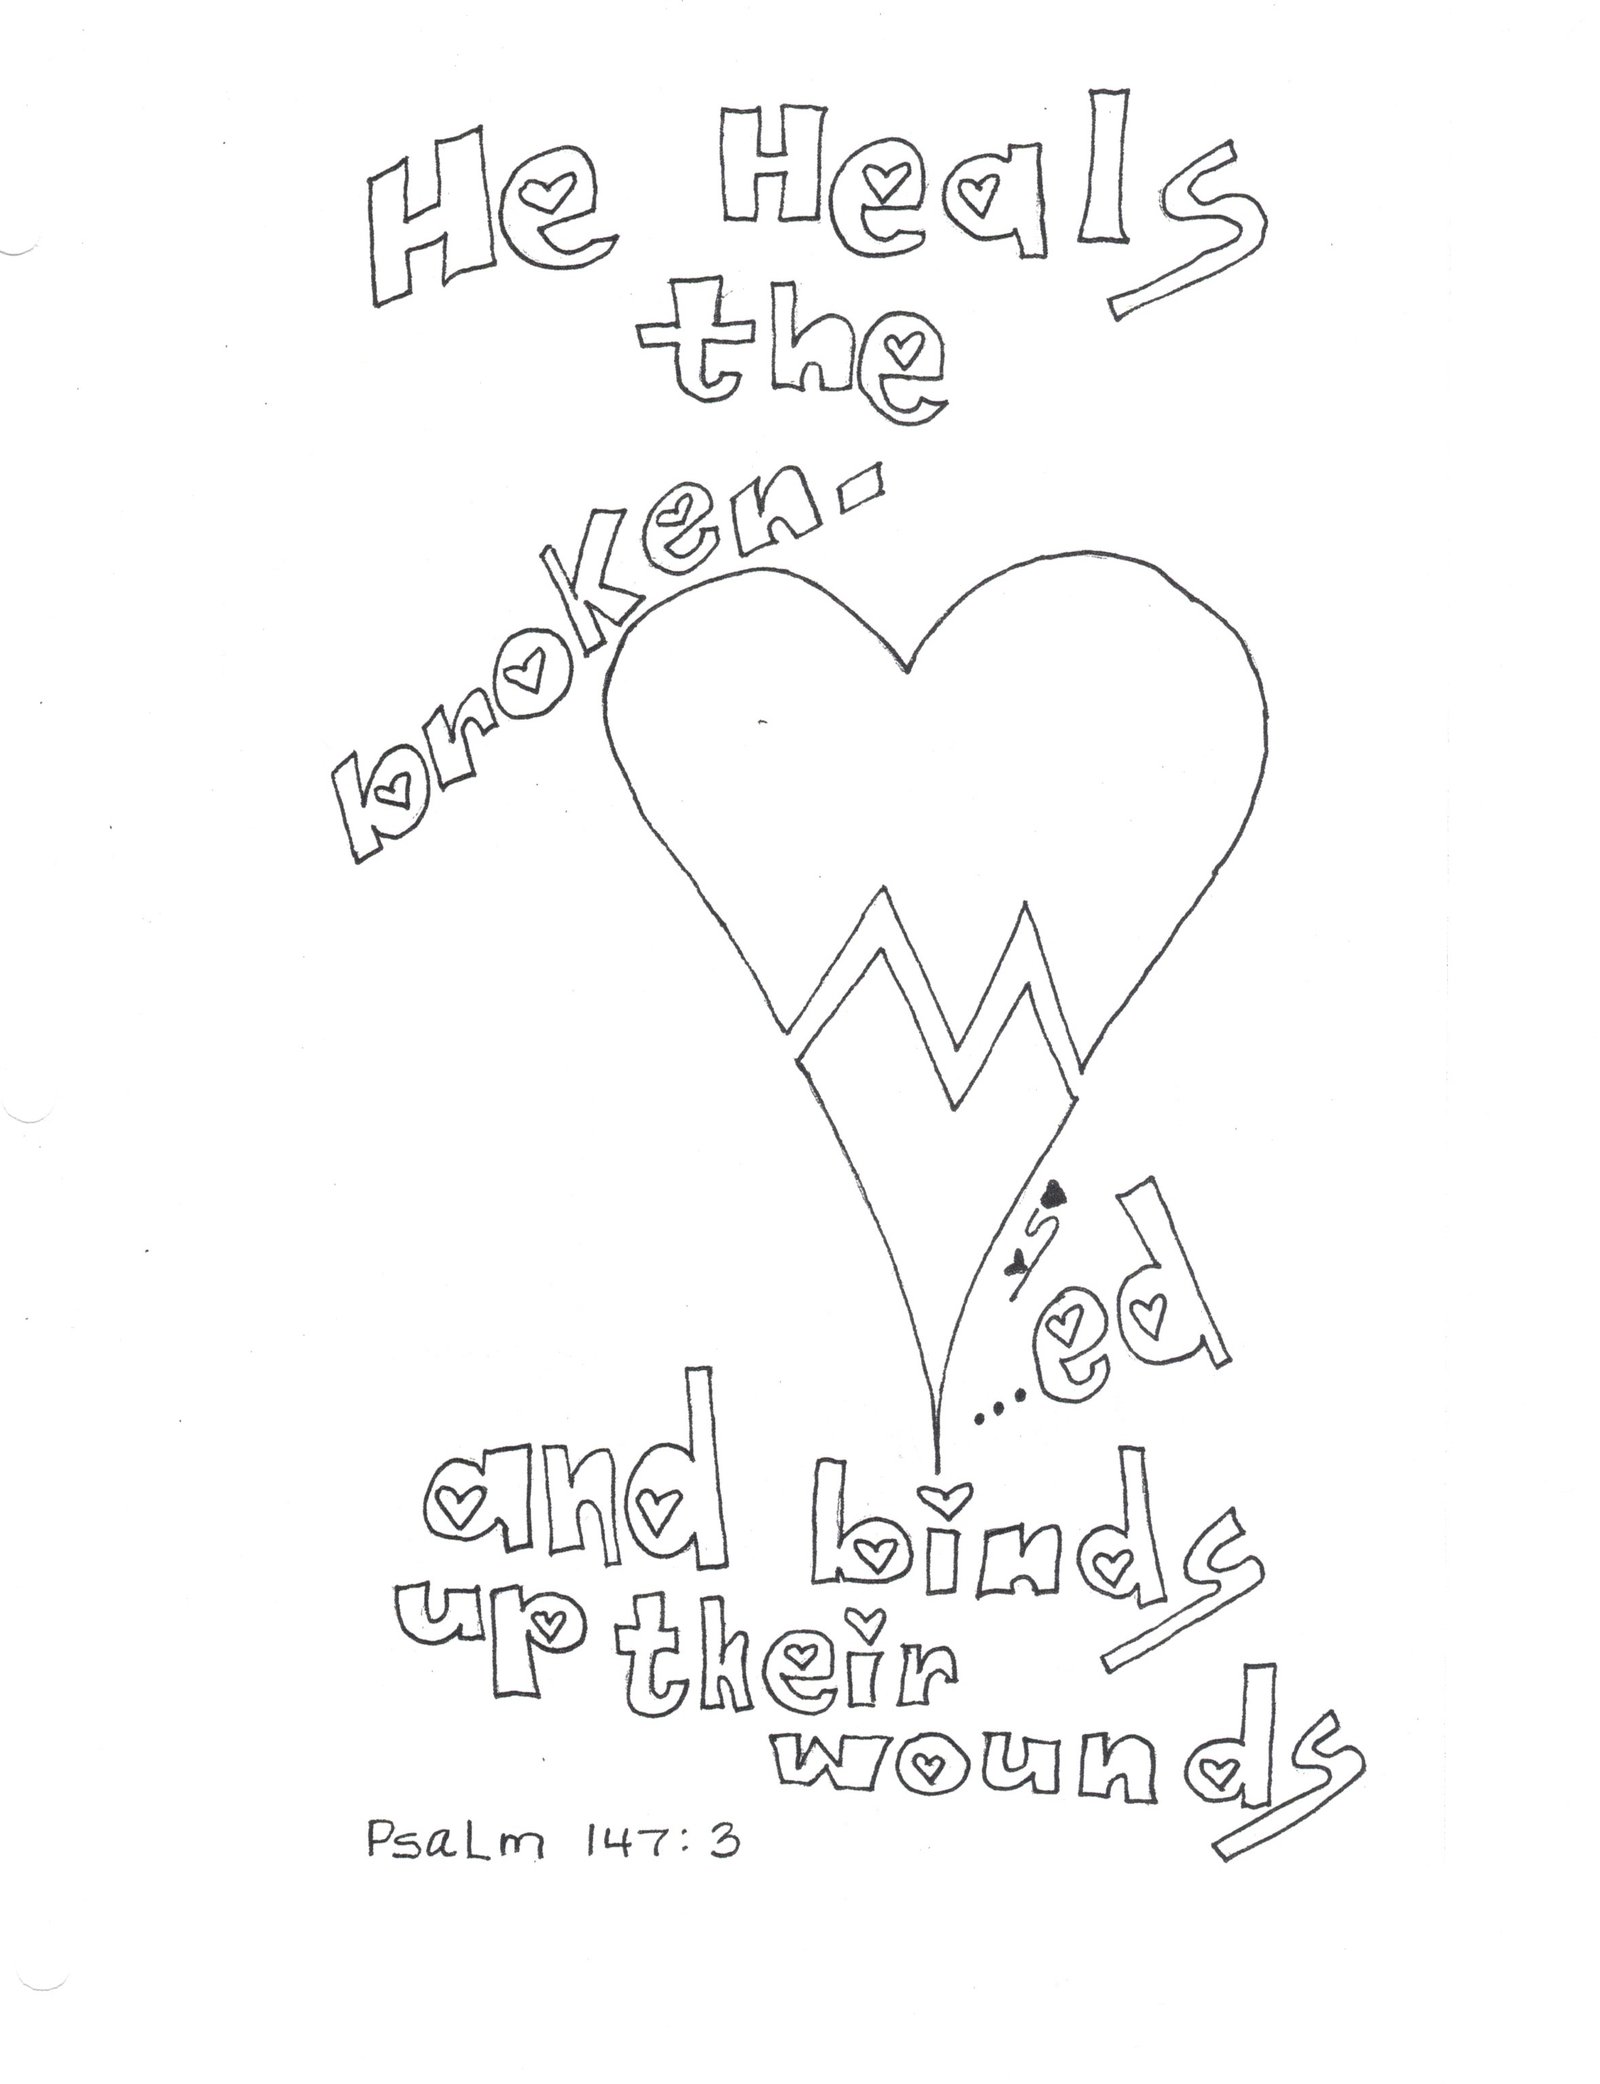 He Heals
the
broken-
...ed
and binds
up their
wounds
Psalm 147:3